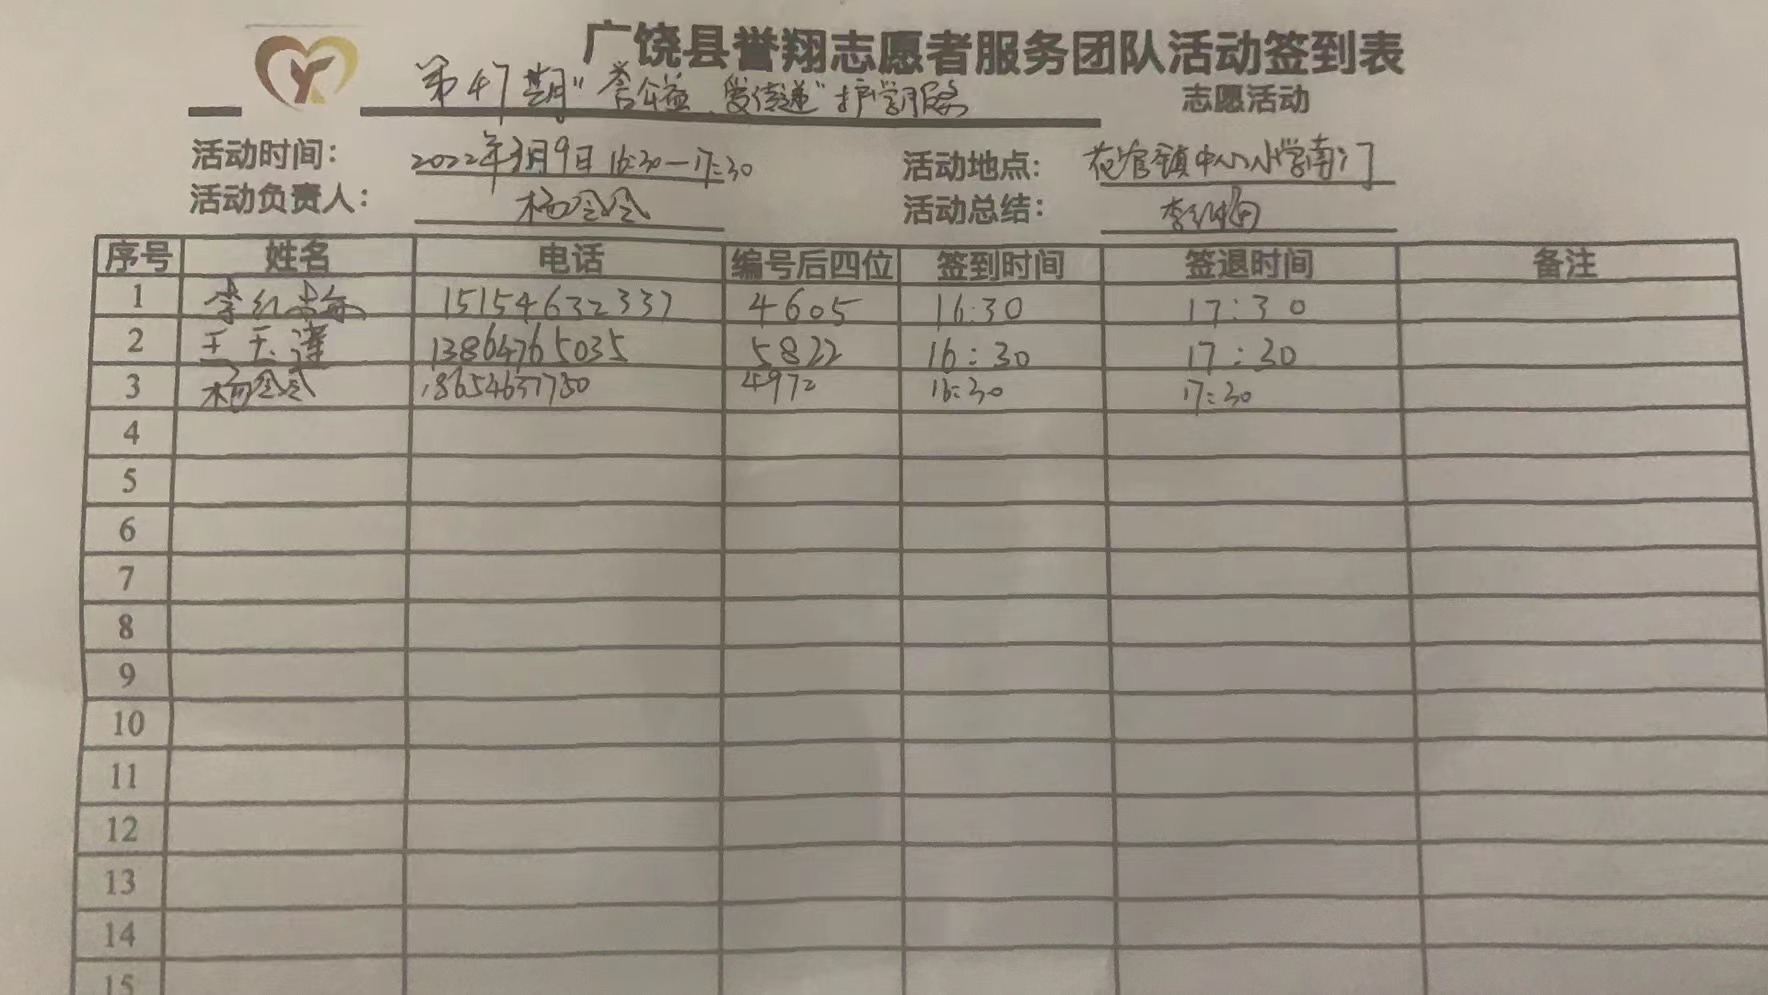 广饶县誉翔志愿者服务团队活动签到表
第47期"誉公益、爱传递"护学服务 志愿活动
活动时间： 2022年3月9日 16:30—17:30 活动地点： 花官镇中心小学南门
活动负责人： 杨令令 活动总结： 李红梅
序号 姓名 电话 编号后四位 签到时间 签退时间 备注
1 李红梅 15154632337 4605 16:30 17:30
2 王天泽 13864765035 5822 16:30 17:30
3 杨令令 18654637780 4972 16:30 17:30
4
5
6
7
8
9
10
11
12
13
14
15